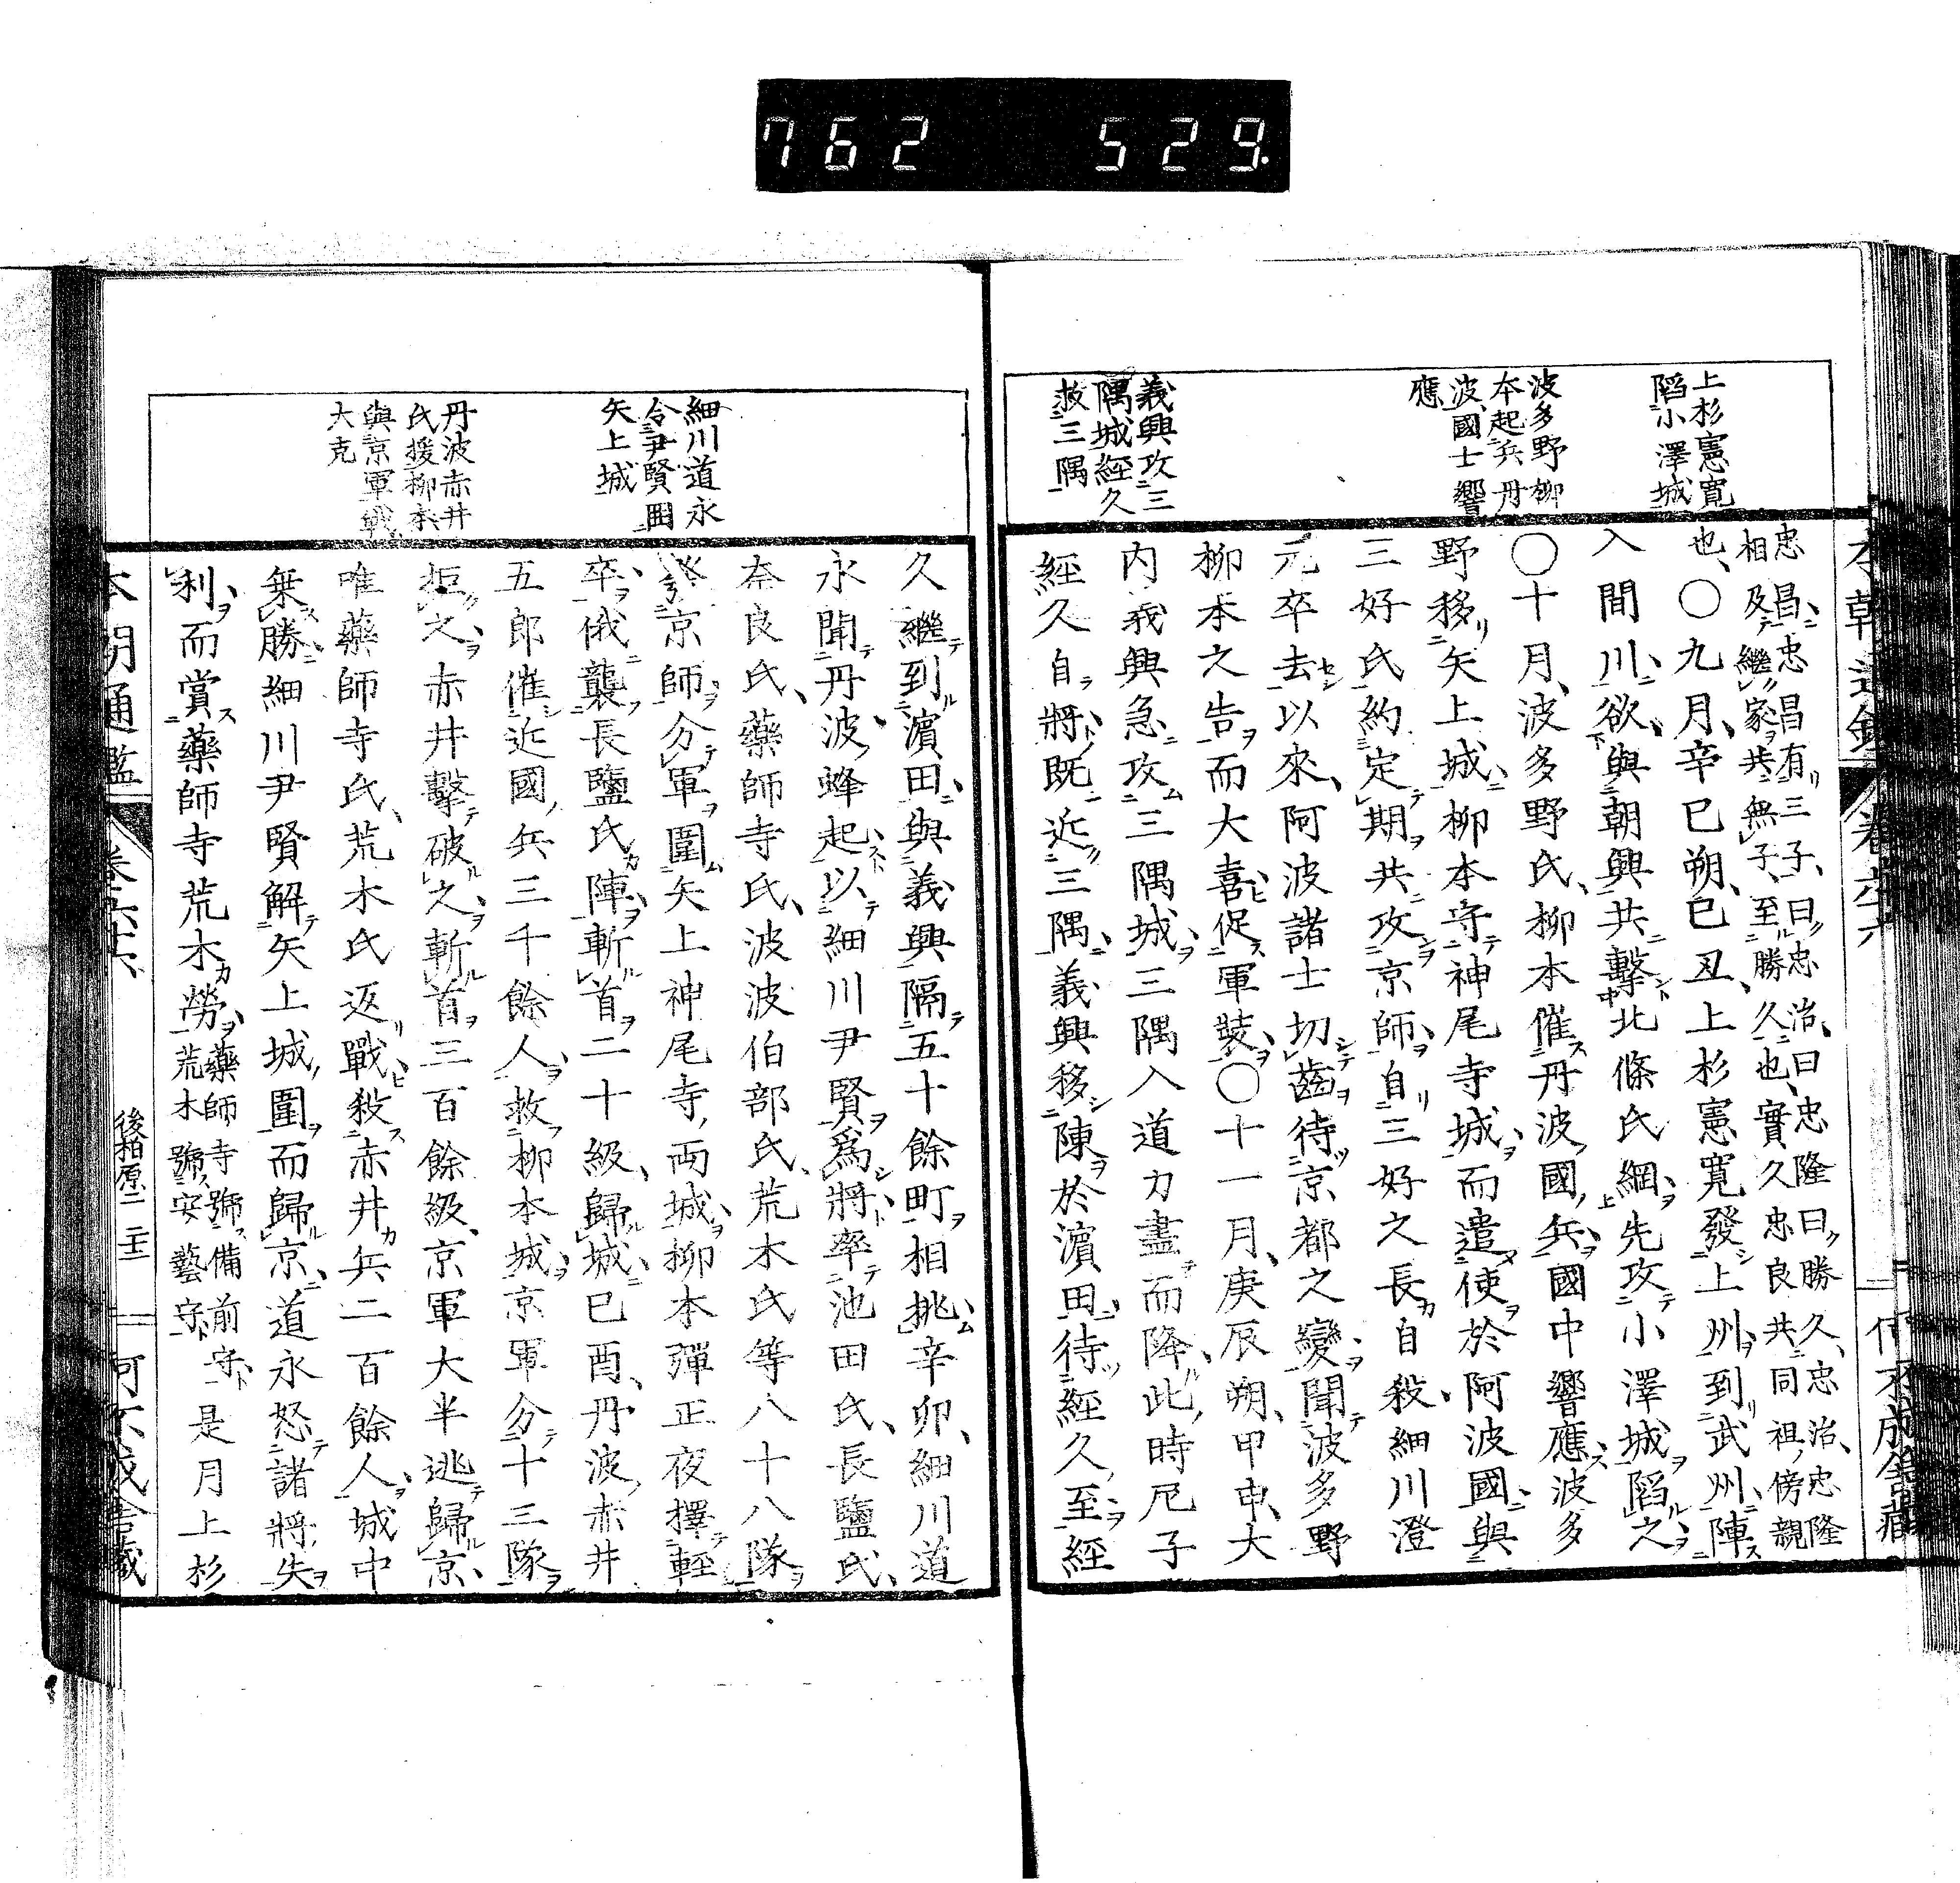 762 529.
上杉憲寛
陷小澤城
波多野柳
本起兵丹
波國士響
應
義興攻三
隅城經久
救三隅
忠昌忠昌有三子曰忠治曰忠隆曰勝久忠治忠隆
相及繼家共無子至勝久也實久忠良共同祖傍親
也〇九月辛巳朔己丑上杉憲寛發上州到武州陣
入間川欲與朝興共擊北條氏綱先攻小澤城陷之
〇十月波多野氏柳本催丹波國兵國中響應波多
野移矢上城柳本守神尾寺城而遣使於阿波國與
三好氏約定期共攻京師自三好之長自殺細川澄
元卒去以來阿波諸士切齒待京都之變聞波多野
柳本之告而大喜促軍裝〇十一月庚辰朔甲申大
内義興急攻三隅城三隅入道力盡而降此時尼子
經久自將既近三隅義興移陳於濱田待經久至經
細川道永
令尹賢囲
矢上城
丹波赤井
氏援柳本
與京軍戰
大克
久繼到濱田與義興隔五十餘町相挑辛卯細川道
永聞丹波蜂起以細川尹賢爲將率池田氏長鹽氏
奈良氏藥師寺氏波波伯部氏荒木氏等八十八隊
發京師分軍圍矢上神尾寺両城柳本彈正夜擇輕
卒俄襲長鹽氏陣斬首二十級歸城己酉丹波赤井
五郎催近國兵三千餘人救柳本城京軍分十三隊
拒之赤井擊破之斬首三百餘級京軍大半逃歸京
唯藥師寺氏荒木氏返戰殺赤井兵二百餘人城中
乗勝細川尹賢解矢上城圍而歸京道永怒諸將失
利而賞藥師寺荒木勞藥師寺號備前守荒木號安藝守是月上杉
本朝通鑑 卷六十六 後柏原二 二十三